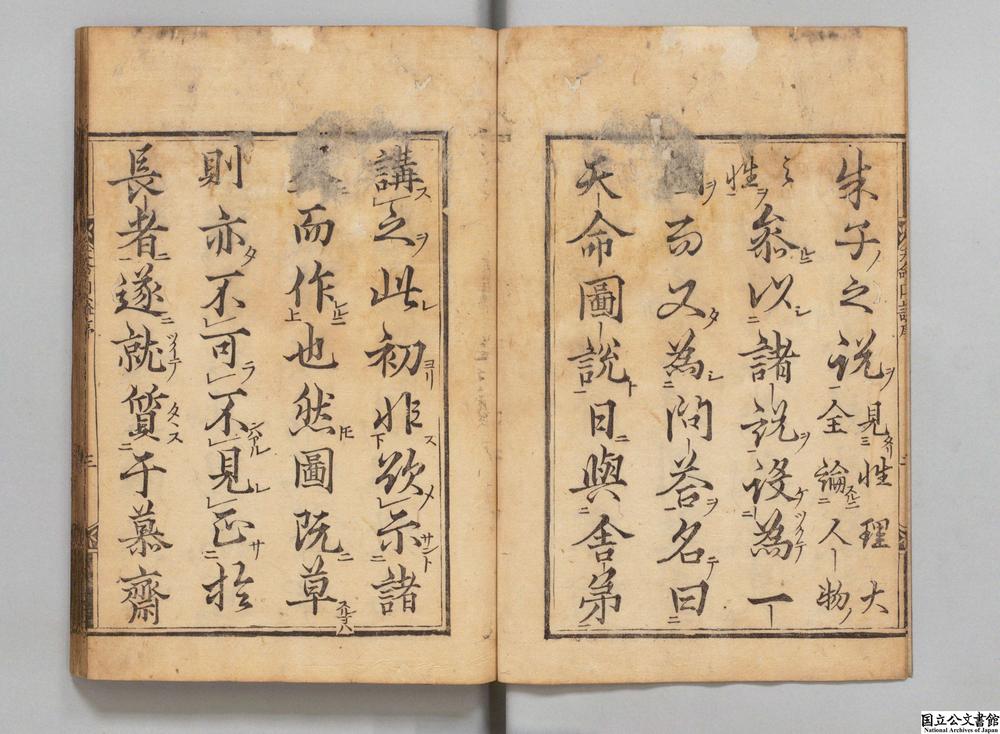 朱子之説見性理大
全論人物
之性
参以諸説設為一
圖而又為問答名曰
天命圖説日與舎弟
講之此初非欲示諸
人而作也然圖既草
則亦不可不見正於
長者遂就質于慕齋
国立公文書館
National Archives of Japan